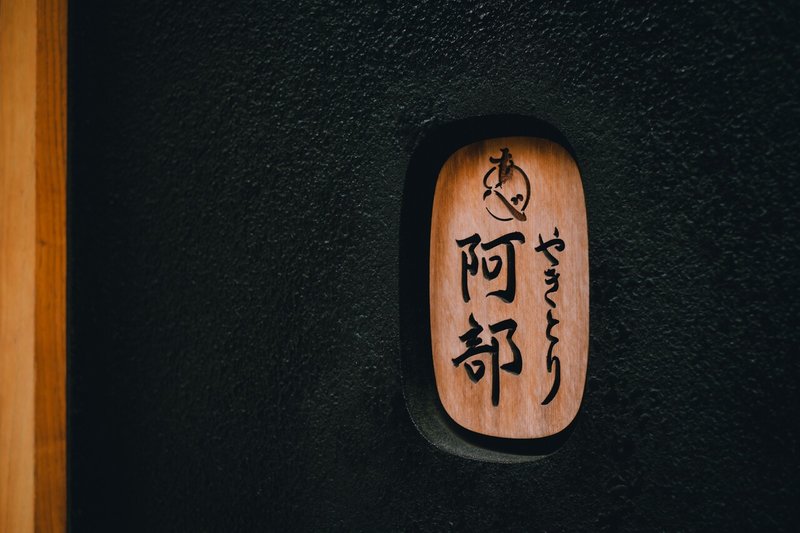 あべ
やきとり
阿部